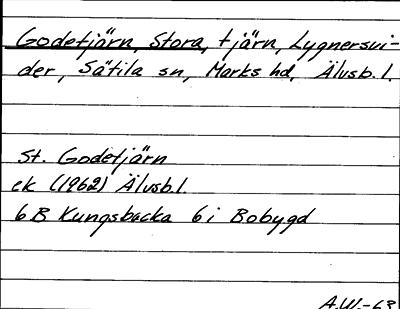 Godetjärn, Stora, tjärn, Lygnersvi-
der, Sätila sn, Marks hd, Älvsb. l.
St. Godetjärn
ek (1962) Älvsb. l.
6B Kungsbacka 6i Bobygd